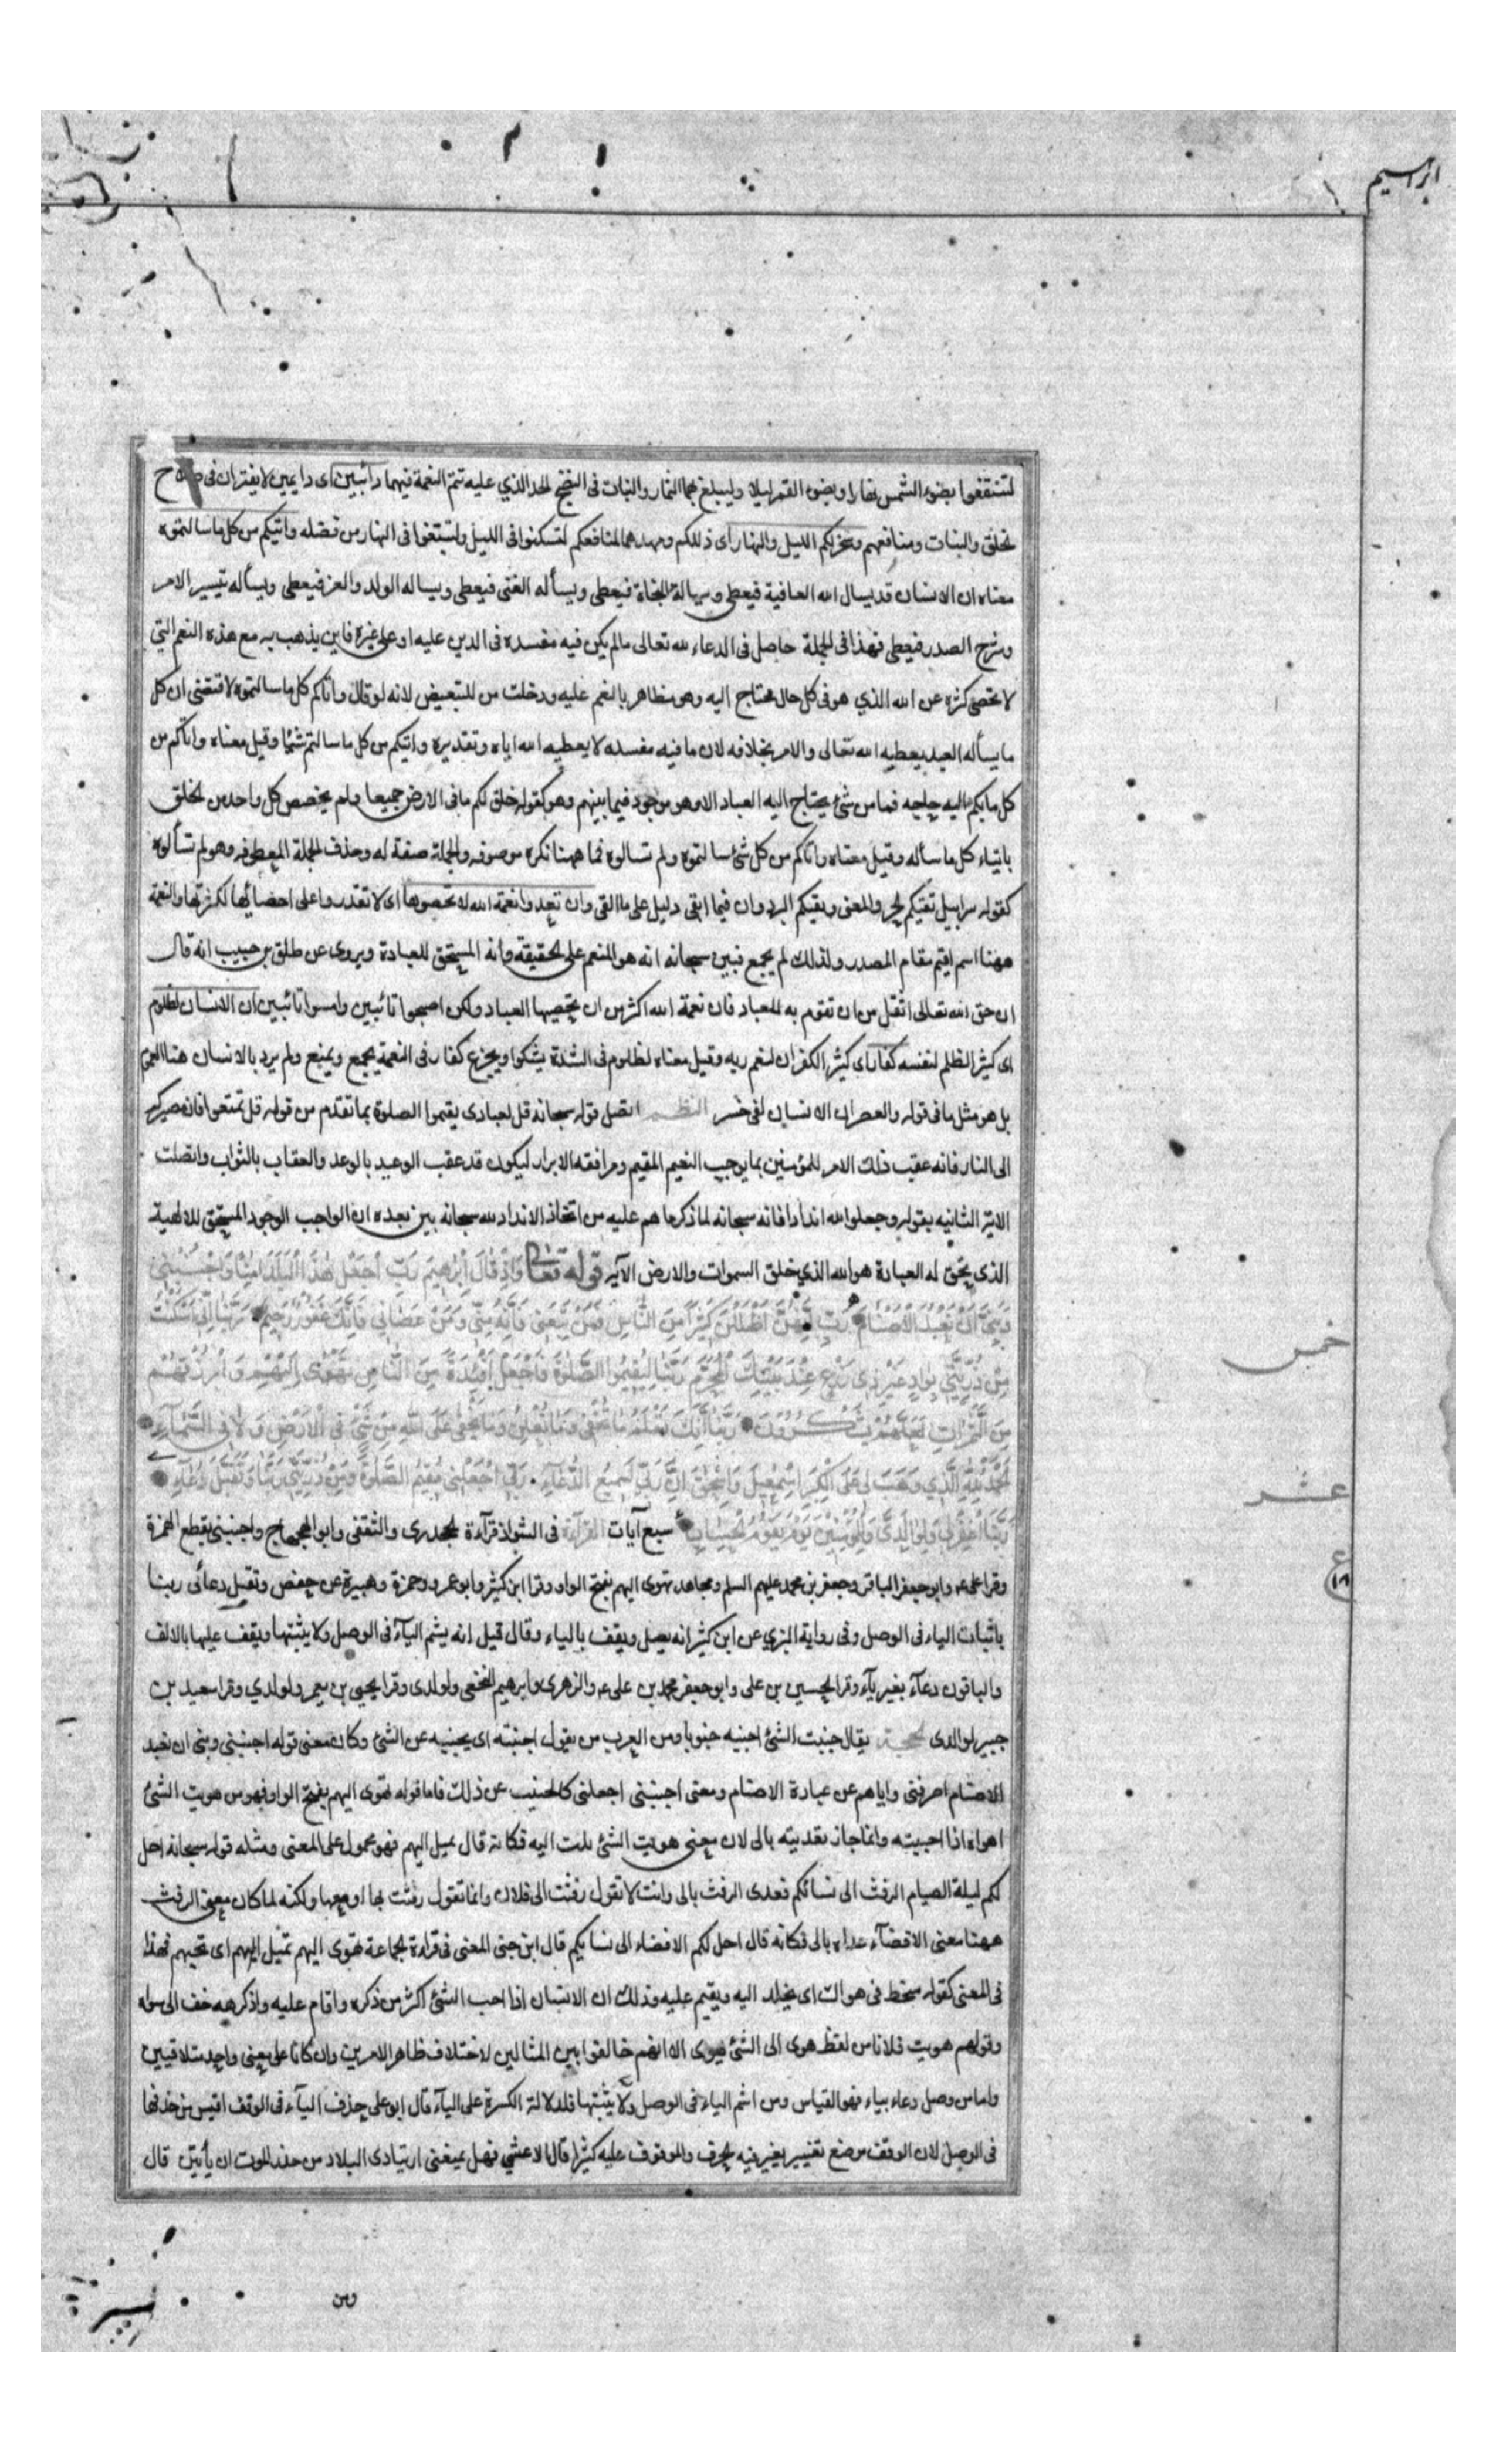 ابراهيم
لتنتفعوا بضوء الشمس نهارا وبضوء القمر ليلا وليبلغ بهما الثمار والنبات فى النضج الحد الذي عليه تتم النعمة فيهما دائبين اى دايمين لا يفتران فى صلاح
الخلق والنبات ومنافعهم وسخر لكم الليل والنهار اى ذللكم ومهدهما لمنافعكم لتسكنوا فى الليل ولتبتغوا فى النهار من فضله واتيكم من كل ما سالتموه
معناه ان الانسان قد يسال الله العافية فيعطى ويساله النجاة فيعطى ويسأله الغنى فيعطى ويساله الولد والعز فيعطى ويسأله تيسير الامر
وشرح الصدر فيعطى فهذا فى الجملة حاصل فى الدعاء لله تعالى مالم يكن فيه مفسده فى الدين عليه او على غيره فاين يذهب به مع هذه النعم التى
لا تحصى كثره عن الله الذي هو فى كل حال محتاج اليه وهو مظاهر بالنعم عليه ودخلت من للتبعيض لانه لو قال واتاكم كل ما سالتموه لاقتضى ان كل
ما يسأله العبد يعطيه الله تعالى والامر بخلافه لان ما فيه مفسده لا يعطيه الله اياه وتقديره واتيكم من كل ما سالتم شئا وقيل معناه واتاكم من
كل ما بكم اليه حاجه فما من شئ يحتاج اليه العباد الا وهو موجود فيما بينهم وهو كقوله خلق لكم ما فى الارض جميعا ولم يخصص كل واحد من الخلق
بايتاء كل ما سأله وقيل معناه واتاكم من كل شئ سالتموه ولم تسالوه فما ههنا نكره موصوفه والجملة صفة له وحذف الجملة المعطوفه وهو لم تسألوه
كقوله سرابيل تقيكم الحر والمعنى وتقيكم البرد وان فيما ابقى دليل على ما القى وان تعدوا نعمة الله لا تحصوها اى لا تقدروا على احصائها لكثرتها والنعمة
ههنا اسم اقيم مقام المصدر ولذلك لم يجمع فبين سبحانه انه هو المنعم على الحقيقة وأنه المستحق للعبادة ويروى عن طلق بن حبيب انه قال
ان حق الله تعالى اثقل من ان تقوم به العباد فان نعمة الله اكثر من ان تحصيها العباد ولكن اصبحوا تائبين وامسوا تائبين ان الانسان لظلوم
اى كثير الظلم لنفسه كفار اى كثير الكفران لنعم ربه وقيل معناه لظلوم فى الشدة يشكوا ويجزع كفار فى النعمة يجمع ويمنع ولم يرد بالانسان هنا العموم
بل هو مثل ما فى قوله والعصر ان الانسان لفى خسر النظم اتصل قوله سبحانه قل لعبادى يقيموا الصلوة بما تقدم من قوله قل تمتعوا فان مصيركم
الى النار فانه عقيب ذلك الامر للمؤمنين بما يوجب النعيم المقيم ومرافقة الابرار ليكون قد عقب الوعيد بالوعد والعقاب بالثواب واتصلت
الاية الثانيه بقوله وجعلوا لله اندادا فانه سبحانه لما ذكر ما هم عليه من اتخاذ الانداد لله سبحانه بين بعده ان الواجب الوجود المستحق للالهية
الذى يحق له العبادة هو الله الذي خلق السموات والارض الآيه قوله تعالى وَإِذْ قَالَ إِبْرٰهِيمُ رَبِّ اجْعَلْ هٰذَا الْبَلَدَ اٰمِنًا وَاجْنُبْنِى
وَبَنِىَّ اَنْ نَعْبُدَ الْاَصْنَامَ رَبِّ اِنَّهُنَّ اَضْلَلْنَ كَثِيرًا مِنَ النَّاسِ فَمَنْ تَبِعَنِى فَاِنَّهُ مِنِّى وَمَنْ عَصَانِى فَاِنَّكَ غَفُورٌ رَحِيمٌ رَبَّنَا اِنِّى اَسْكَنْتُ
مِنْ ذُرِّيَّتِى بِوَادٍ غَيْرِ ذِى زَرْعٍ عِنْدَ بَيْتِكَ الْمُحَرَّمِ رَبَّنَا لِيُقِيمُوا الصَّلٰوةَ فَاجْعَلْ اَفْئِدَةً مِنَ النَّاسِ تَهْوِى اِلَيْهِمْ وَارْزُقْهُمْ
مِنَ الثَّمَرَاتِ لَعَلَّهُمْ يَشْكُرُونَ رَبَّنَا اِنَّكَ تَعْلَمُ مَا نُخْفِى وَمَا نُعْلِنُ وَمَا يَخْفٰى عَلَى اللّٰهِ مِنْ شَىْءٍ فِى الْاَرْضِ وَلَا فِى السَّمَآءِ
اَلْحَمْدُ لِلّٰهِ الَّذِى وَهَبَ لِى عَلَى الْكِبَرِ اِسْمٰعِيلَ وَاِسْحٰقَ اِنَّ رَبِّى لَسَمِيعُ الدُّعَآءِ رَبِّ اجْعَلْنِى مُقِيمَ الصَّلٰوةِ وَمِنْ ذُرِّيَّتِى رَبَّنَا وَتَقَبَّلْ دُعَآءِ
رَبَّنَا اغْفِرْ لِى وَلِوَالِدَىَّ وَلِلْمُؤْمِنِينَ يَوْمَ يَقُومُ الْحِسَابُ سبع آيات القراءة فى الشواذ قرآءة الجحدرى والثقفى وابو الهجهاج واجنبنى بقطع الهمزة
وقرا على ع وابو جعفر الباقر وجعفر بن محمد عليهم السلم ومجاهد تهوى اليهم بفتح الواو وقرا ابن كثير وابو عمرو وحمزة وهبيرة عن حفص وتقبل دعائى ربنا
باثبات الياء فى الوصل وفى رواية البزي عن ابن كثير انه يصل ويقف بالياء وقال قنبل انه يشم اليآء فى الوصل ولا يثبتها ويقف عليها بالالف
والباقون دعآء بغير يآء وقرا الحسين بن على وابو جعفر محمد بن على ع والزهرى وابرهيم النخعى ولولدى وقرا يحيى بن يعمر ولولدي وقرا سعيد بن
جبير لوالدى الحجة يقال جنبت الشئ اجنبه جنوبا ومن العرب من يقول اجنبته اى يجنبه عن الشئ وكان معنى قوله اجنبنى وبنى ان نعبد
الاصنام اصرفنى واياهم عن عبادة الاصنام ومعنى اجنبنى اجعلنى كالجنيب عن ذلك فاما قوله تهوى اليهم بفتح الواو فهو من هويت الشئ
اهواه اذا احببته وانما جاز تعديته بالى لان معنى هويت الشئ ملت اليه فكانه قال تميل اليهم فهو محمول على المعنى ومثله قوله سبحانه احل
لكم ليلة الصيام الرفث الى نسائكم فعدى الرفث بالى وانت لا تقول رفثت الى فلان وانما تقول رفثت بها او معها ولكنه لما كان معنى الرفث
ههنا معنى الافضآء عداه بالى فكانه قال احل لكم الافضاء الى نسايكم قال ابن جنى المعنى فى قراءة الجماعة تهوى اليهم تميل اليهم اى تحبهم فهذا
فى المعنى كقوله سخط فى هواك اى يخلد اليه ويقيم عليه وذلك ان الانسان اذا احب الشئ اكثر من ذكره واقام عليه واذا كرهه خف الى سواه
وقولهم هويت فلانا من لفظ هوى الى الشئ يهوى الا انهم خالفوا بين المثالين لاختلاف ظاهر الامرين وان كانا على معنى واحد متلاقيين
واما من وصل دعاء بياء فهو القياس ومن اشم الياء فى الوصل ولا يثبتها فلدلالة الكسرة على اليآء قال ابو على حذف اليآء فى الوقف اقيس من حذفها
فى الوصل لان الوقف موضع تغيير يغير فيه الحرف والموقوف عليه كثيرا قال الاعشي فهل يمنعنى ارتيادى البلاد من حذر الموت ان يأتين قال
خمس
عشر
ع
ومن